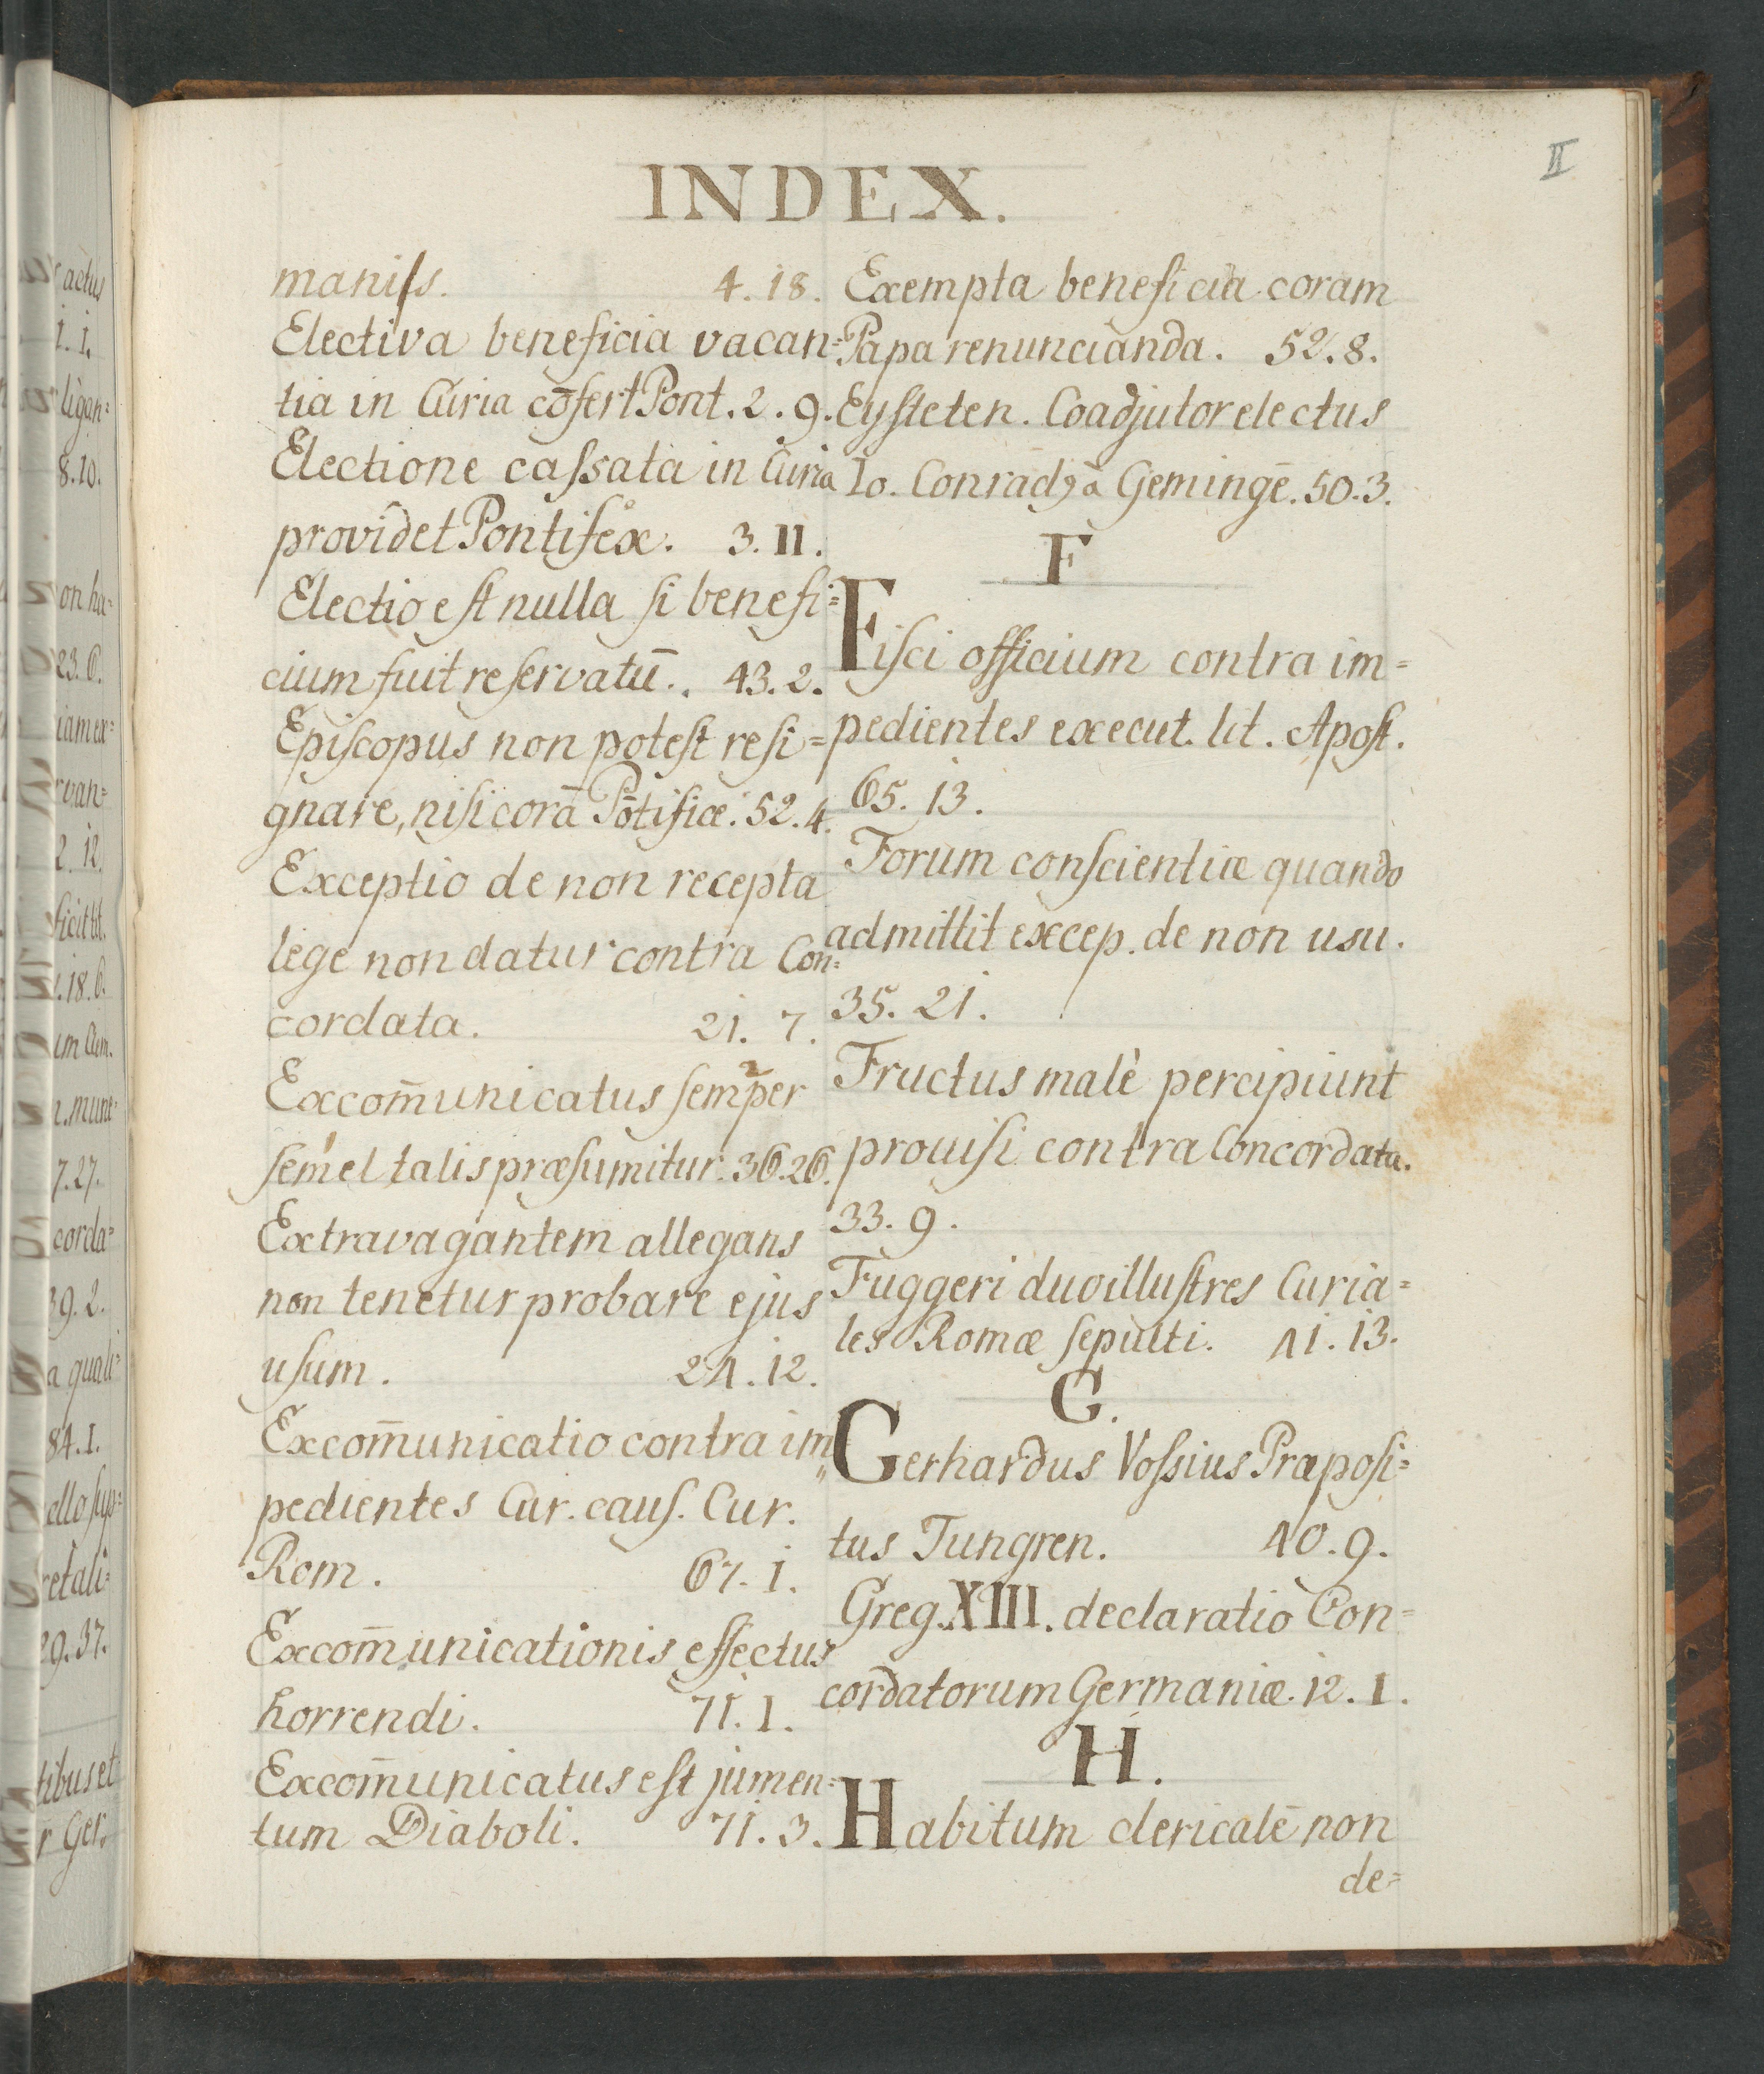 II
INDEX.
maniſs. 4. 18.
Electiva beneficia vacan=
tia in Curia cōfert Pont. 2. 9.
Electione caſsata in Curia
providet Pontifex. 3. 11.
Electio eſt nulla ſi benefi=
cium fuit reſervatū. 43. 2.
Epiſcopus non poteſt reſi=
gnare, niſi corā Pōtifice. 52. 4.
Exceptio de non recepta
lege non datur contra Con=
cordata. 21. 7.
Excom̄unicatus ſemper
ſemel talis præſumitur. 36. 26.
Extravagantem allegans
non tenetur probare ejus
uſum. 24. 12.
Excom̄unicatio contra im=
pedientes Cur. cauſ. Cur.
Rom. 67. 1.
Excom̄unicationis effectus
horrendi. 71. 1.
Excom̄unicatus eſt jumen=
tum Diaboli. 71. 3.
Exempta beneficia coram
Papa renuncianda. 52. 8.
Eyſteten. Coadjutor electus
Io. Conradꝫ à Gemingē. 50. 3.
F
Fiſci officium contra im=
pedientes execut. lit. Apoſt.
65. 13.
Forum conſcientiæ quando
admittit excep. de non usu.
35. 21.
Fructus malè percipiunt
prouiſi contra Concordata.
33. 9.
Fuggeri duo illuſtres Curia=
les Romæ ſepulti. 41. 13.
G.
Gerhardus Voſsius Præpoſi=
tus Tungren. 40. 9.
Greg. XIII. declaratio Con=
cordatorum Germaniæ. 12. 1.
H.
Habitum clericalē non
de=